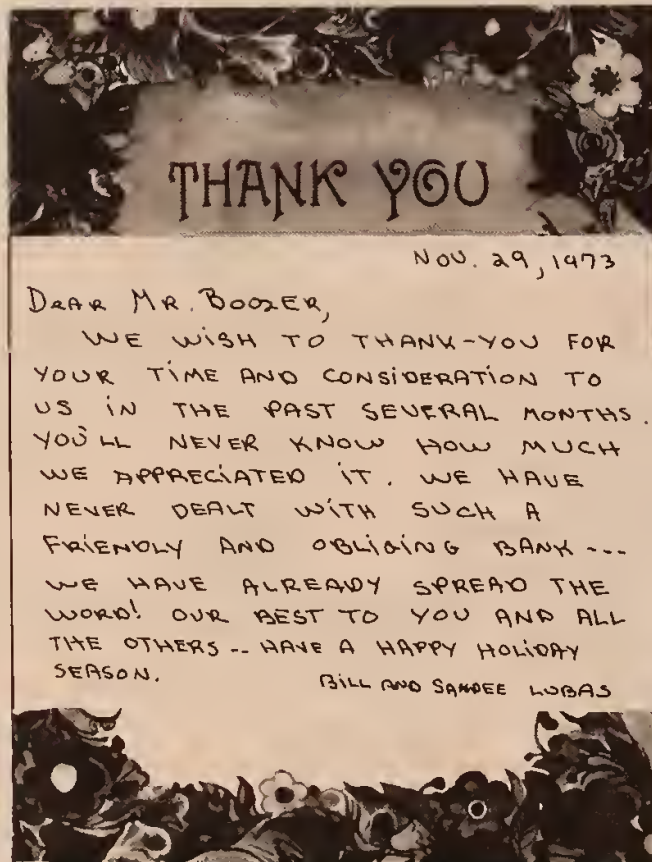 THANK YOU
NOV. 29, 1973
DEAR MR. BOOZER,
WE WISH TO THANK-YOU FOR
YOUR TIME AND CONSIDERATION TO
US IN THE PAST SEVERAL MONTHS.
YOU'LL NEVER KNOW HOW MUCH
WE APPRECIATED IT. WE HAVE
NEVER DEALT WITH SUCH A
FRIENDLY AND OBLIGING BANK ---
WE HAVE ALREADY SPREAD THE
WORD! OUR BEST TO YOU AND ALL
THE OTHERS -- HAVE A HAPPY HOLIDAY
SEASON.
BILL AND SANDEE LUBAS